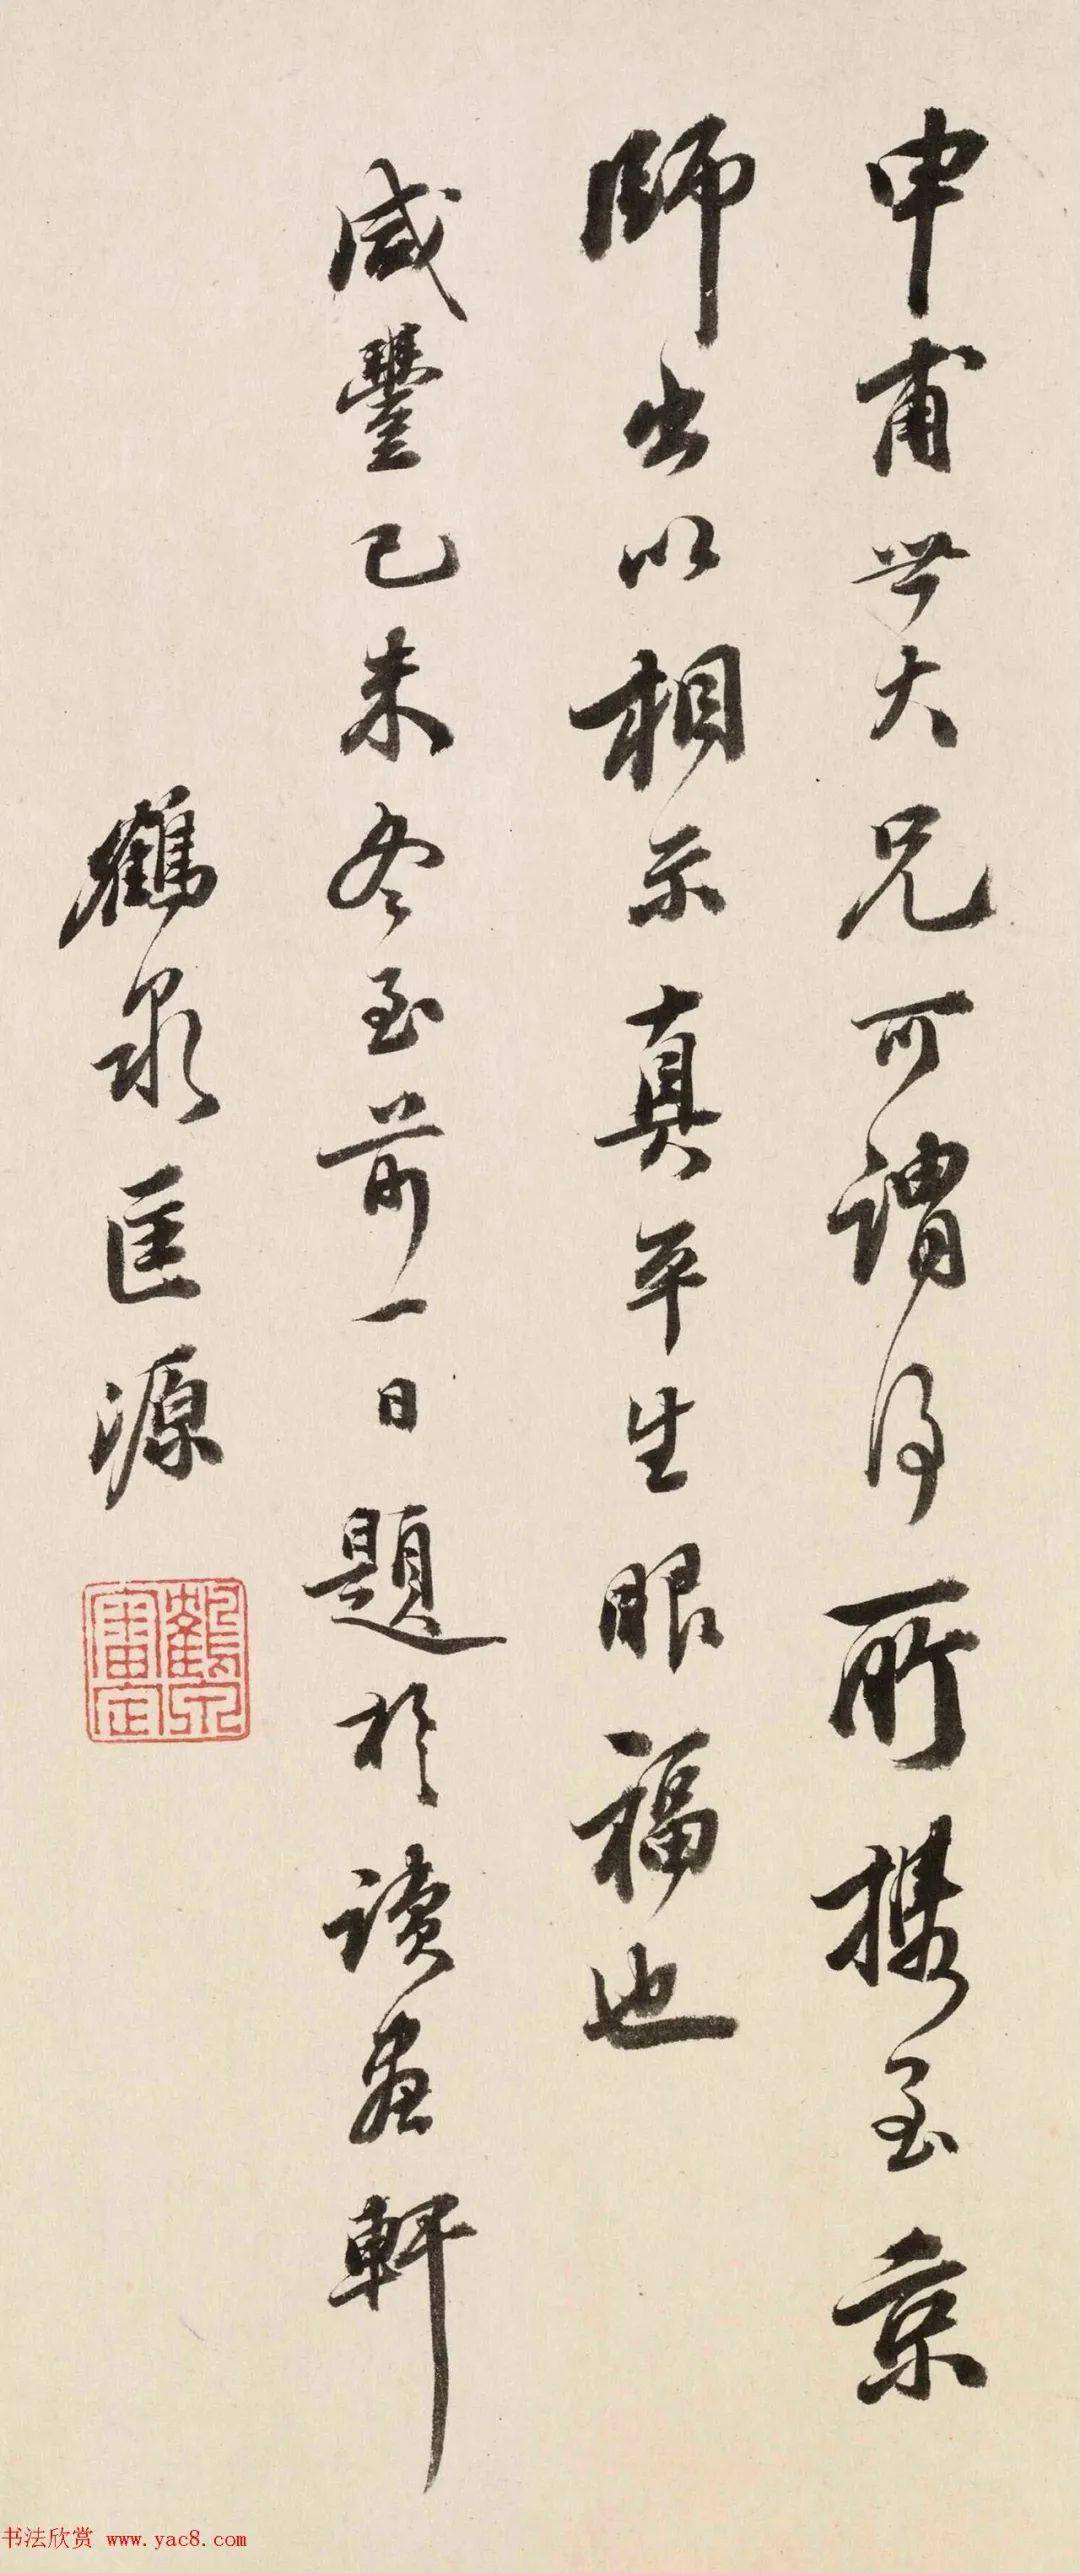 申甫世大兄可謂得所携至京
師出以相示真平生眼福也
咸豐己未冬至前一日題於讀畫軒
鶴泉匡源
鶴泉審定
书法欣赏 www.yac8.com